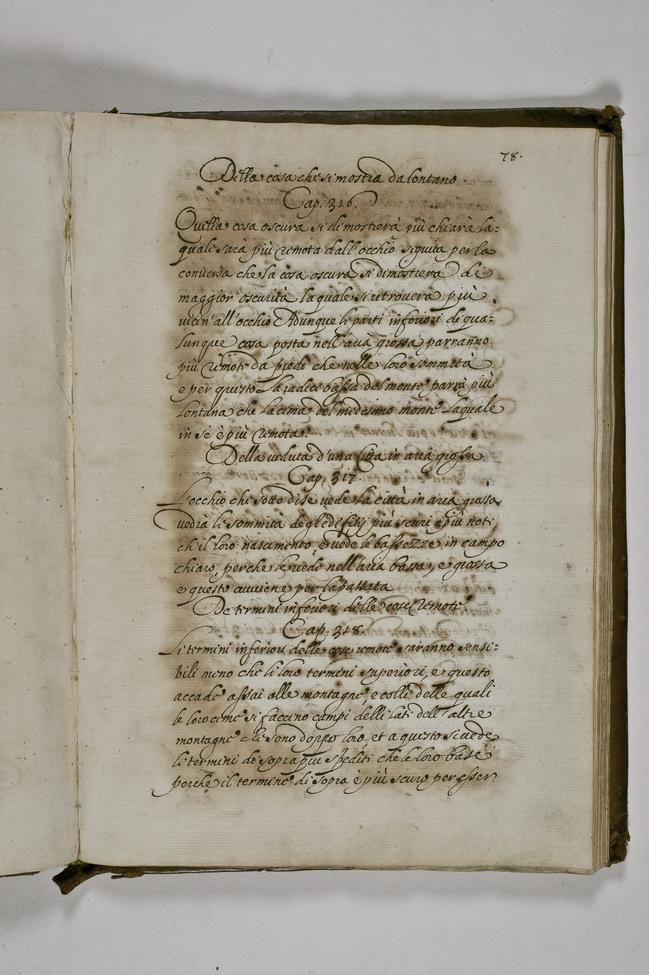 78.
Della cosa che si mostra da lontano
Cap. 316.
Quella cosa oscura si dimostrerà più chiara la=
quale sarà più remota dall'occhio siguita per la
conversa che la cosa oscura si dimostrerà di
maggior oscurità la quale si ritroverà più
vicin'all'occhio Adunque le parti inferiori di qua=
lunque cosa posta nell'aria grossa parranno
più remote da piedi che nelle loro sommità
e per questo la radice bassa del monte parrà più
lontana che la cima del medesimo monte laquale
in se è più remota.
Della veduta d'una Citta in aria grossa
Cap. 317.
L'occhio che sotto di se vede la città in aria grossa
vedrà le sommita degl'edifitij più scuri e più noti
ch'il loro nascimento, e vede le bassezze in campo
chiaro, perche le vede nell'aria bassa, e grossa
e questo avviene per la passata
De termini inferiori delle cose remote.
Cap. 318.
Li termini inferiori delle cose remote saranno sensi=
bili meno che li loro termini superiori, e questo
accade assai alle montagne e colli delle quali
le loro cime si faccino campi delli lati dell'altre
montagne che sono doppo loro, et a questo si vede
li termini de sopra piu spediti che le loro base
perche il termine di sopra è più scuro per esser